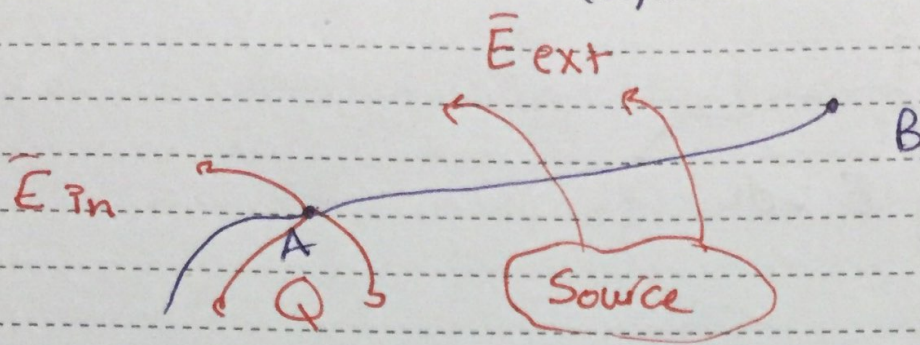 E̅ ext
B
E̅ in
A
Q
Source